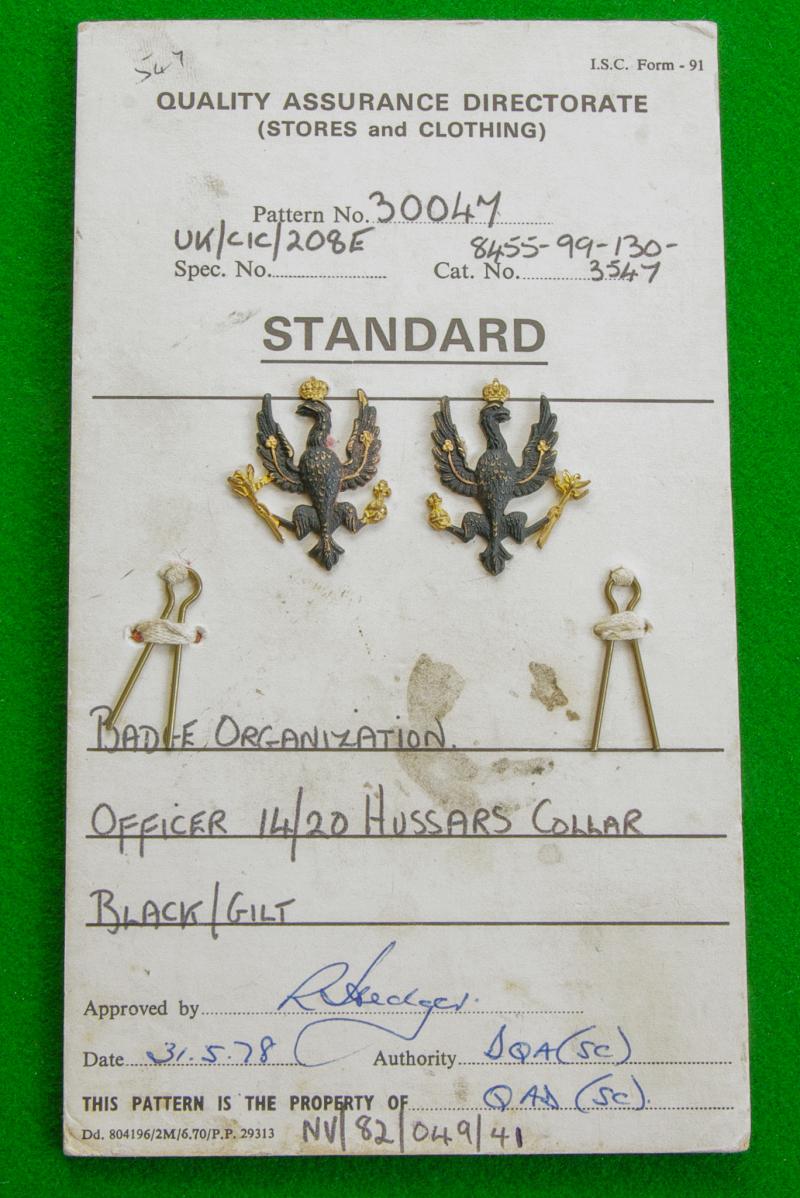 547
I.S.C. Form - 91
QUALITY ASSURANCE DIRECTORATE
(STORES and CLOTHING)
Pattern No. 30047
UK/CIC/208E 8455-99-130-
Spec. No. Cat. No. 3547
STANDARD
BADGE ORGANIZATION.
OFFICER 14/20 HUSSARS COLLAR
BLACK/GILT
Approved by
Date 31.5.78 Authority DQA(SC)
THIS PATTERN IS THE PROPERTY OF QAD (SC).
Dd. 804196/2M/6.70/P.P. 29313 NV/82/049/41